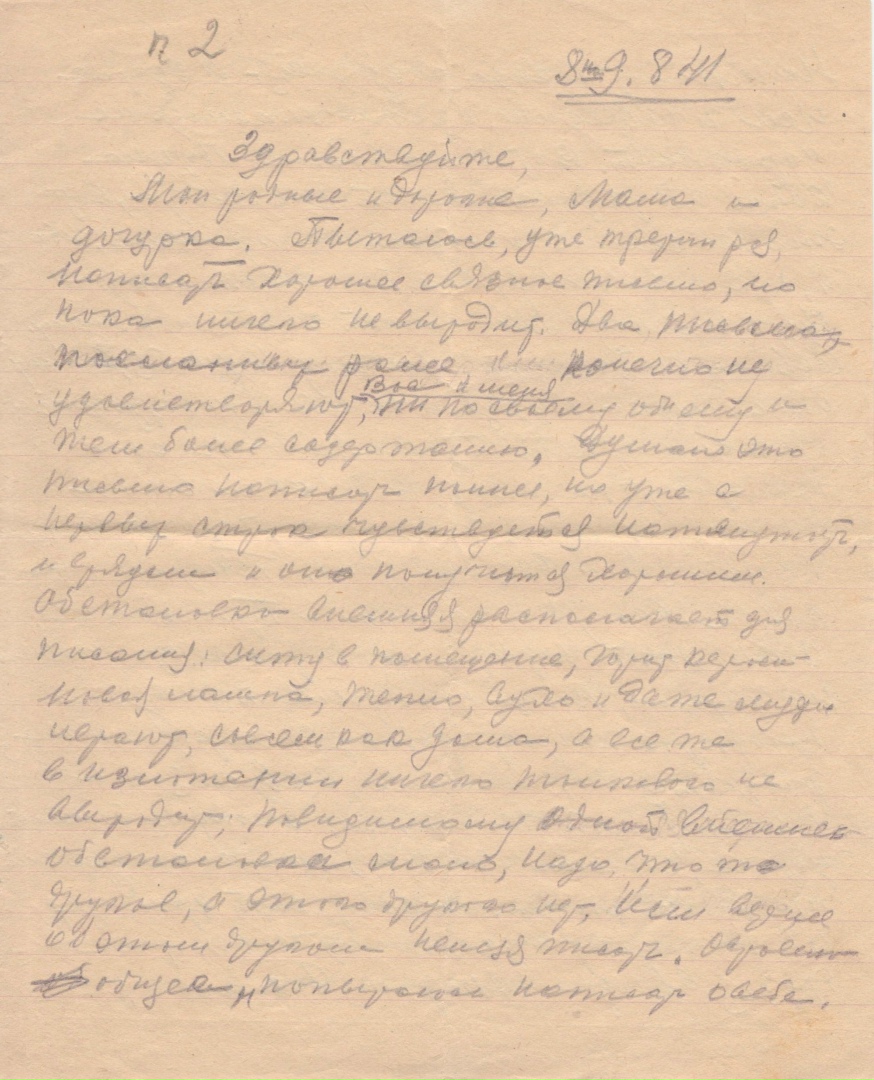 п 2
8 9. 8 41
Здравствуйте,
Мои родные и дорогие, Маша и
дочурка. Пытаюсь, уже третий раз,
написать хорошее связное письмо, но
пока ничего не выходит. Два письма,
посланных ранее конечно не
Вас и меня
удовлетворяют, ни по своему объему и
тем более содержанию. Думаю это
письмо написать полнее, но уже с
первых строк чувствуется натянутость,
и врядли и оно получится хорошим.
Обстановка внешняя располагает для
писания: сижу в помещение, горит кероси-
новая лампа, тепло, сухо и даже
играют, совсем как дома, а все же
в изложении ничего толкового не
выходит; повидимому одной внешней
обстановки мало, надо что то
другое, а этого другого нет. Или вернее
об этом другом нельзя писать.
общее, попытаюсь написать о себе.